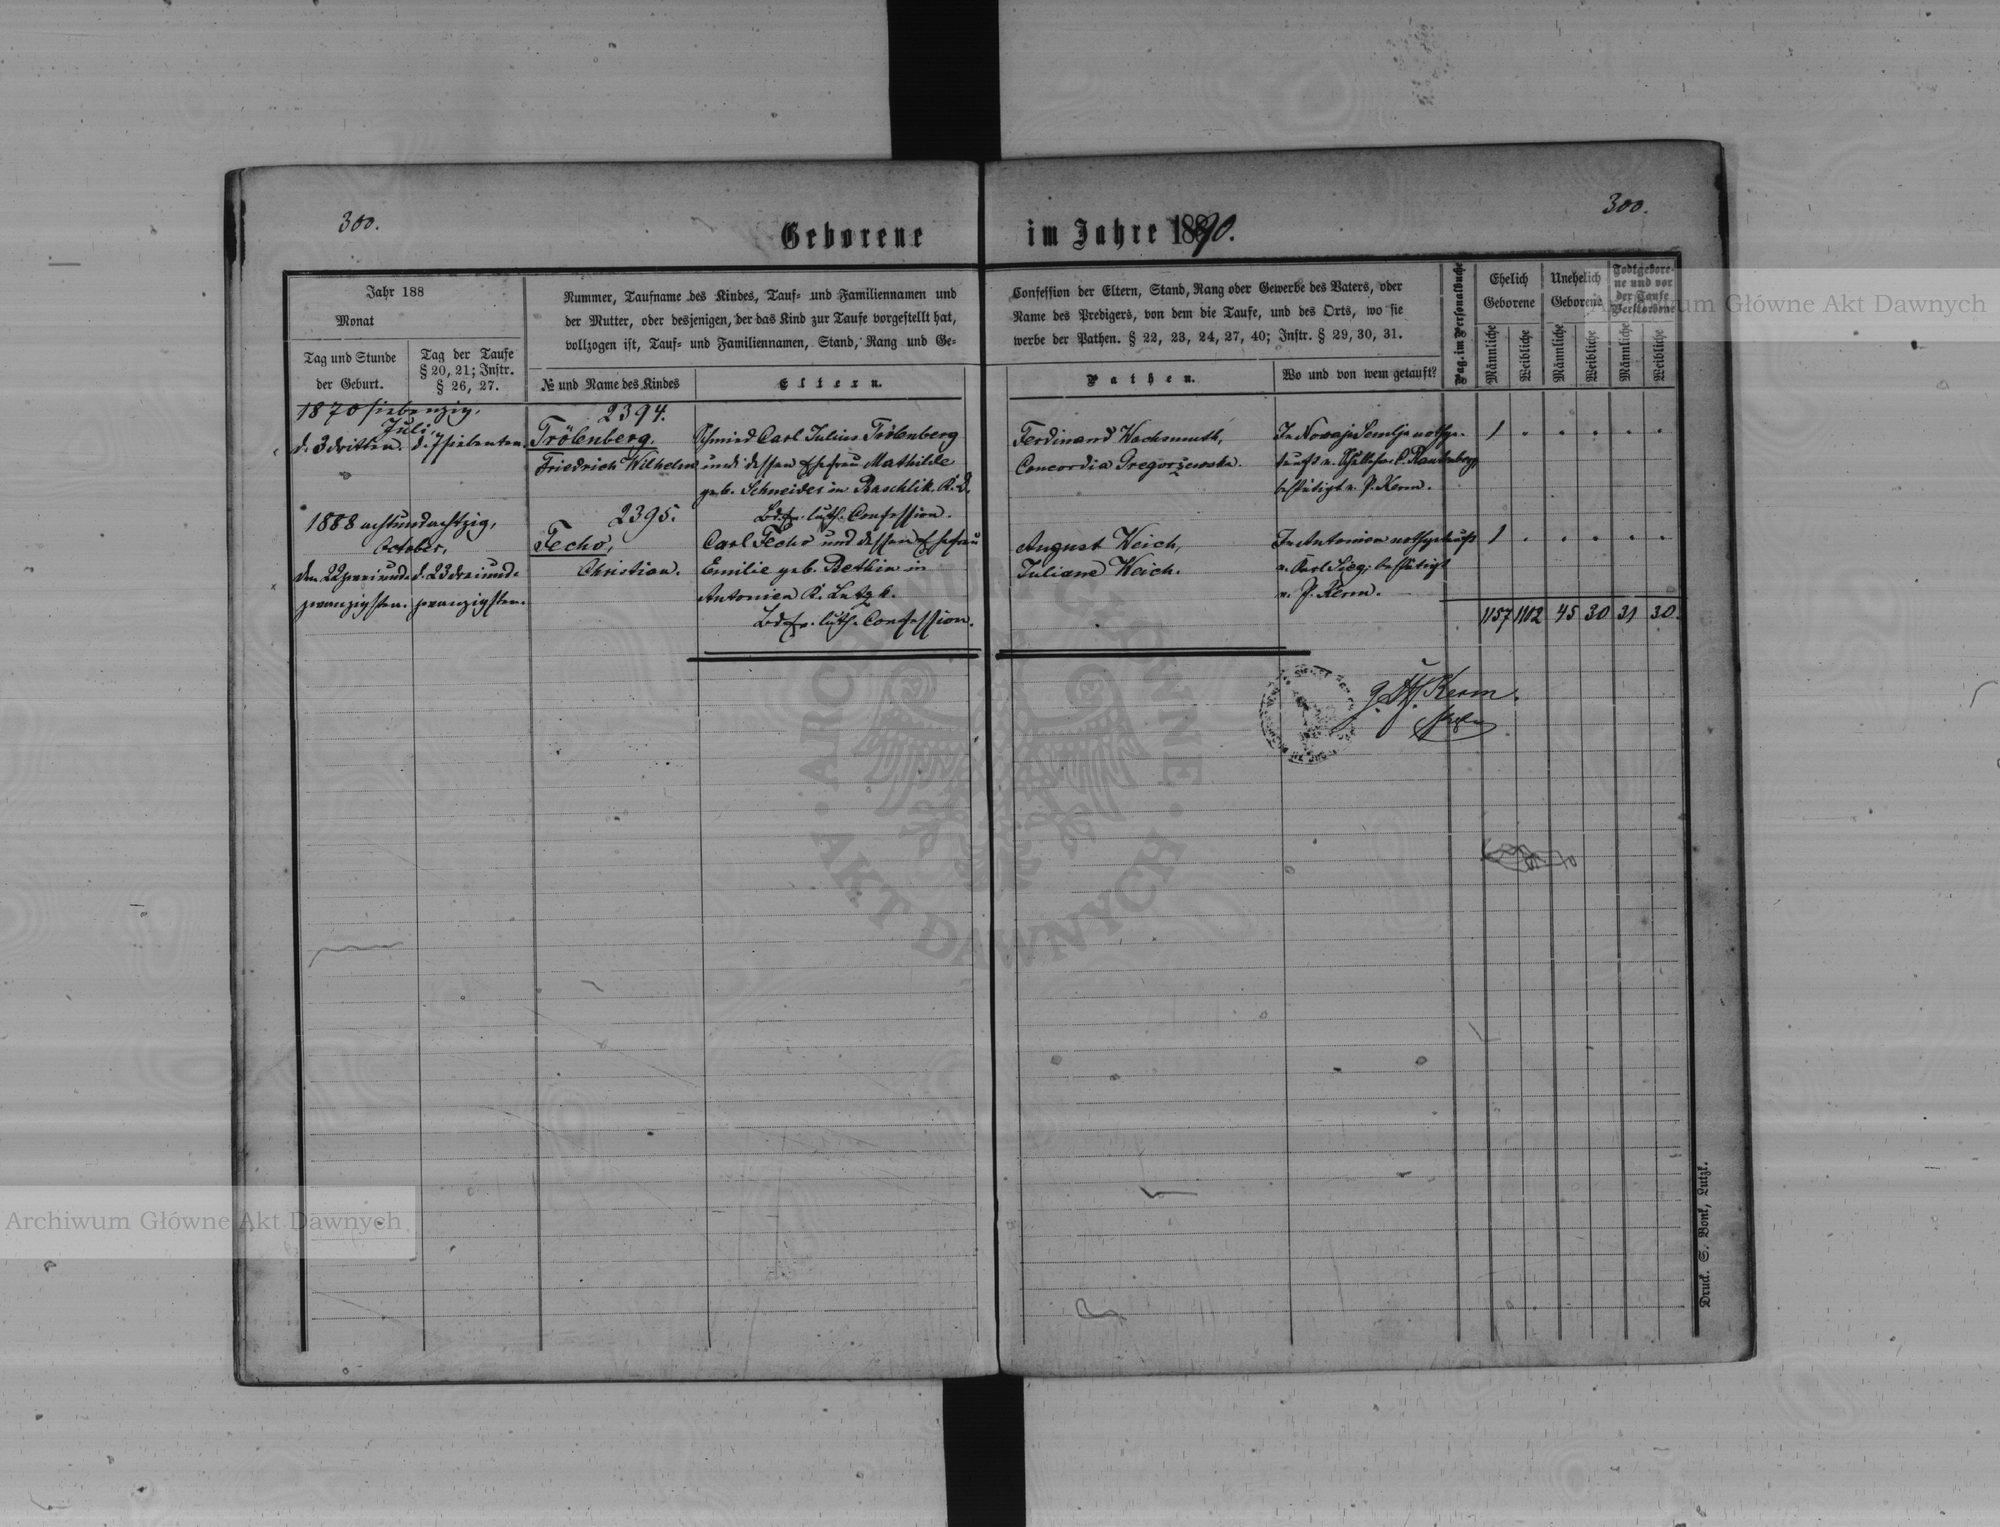 300.
300.
Geborene im Jahre 1890.
Jahr 188
Monat
Tag und Stunde
der Geburt.
Tag der Taufe
§ 20, 21; Instr.
§ 26, 27.
Nummer, Taufname des Kindes, Tauf- und Familiennamen und
der Mutter, oder desjenigen, der das Kind zur Taufe vorgestellt hat,
vollzogen ist, Tauf- und Familiennamen, Stand, Rang und Ge-
№ und Name des Kindes
Eltern.
Confession der Eltern, Stand, Rang oder Gewerbe des Vaters, oder
Name des Predigers, von dem die Taufe, und des Orts, wo sie
werbe der Pathen. § 22, 23, 24, 27, 40; Instr. § 29, 30, 31.
Pathen.
Wo und von wem getauft?
Pag. im Personalbuche
Ehelich
Geborene
Unehelich
Geborene
Todtgebore-
ne und vor
der Taufe
Verstorbene
Männliche
Weibliche
Männliche
Weibliche
Männliche
Weibliche
1870 siebenzig,
Juli,
d. 3 dritten. d. 7 siebenten.
2394.
Trölenberg.
Friedrich Wilhelm
Schmied Carl Julius Trölenberg
und dessen Ehefrau Mathilde
geb. Schneider in Baschlik. K. D.
Bd. ev. luth. Confession.
Ferdinand Wachsmuth,
Concordia Gregorzewska.
In Nowaja Semlja nothge-
tauft v. Schullehr. C. Rautenberg,
bestätigt v. P. Kerm.
1 . . . . .
1888 achtundachtzig,
October,
den 22 zweiund- d. 23 dreiund-
zwanzigsten. zwanzigsten.
2395.
Fecho,
Christian.
Carl Fecho und dessen Ehefrau
Emilie geb. Bethin in
Antonien K. Lutzk.
Bd. ev. luth. Confession.
August Weich,
Juliane Weich.
In Antonien nothgetauft
v. Karl bestätigt
v. P. Kerm.
1 . . . . .
1157 1102 45 30 31 30.
Kerm.
Druck. S. Bonk, Lutzk.
Archiwum Główne Akt Dawnych
Archiwum Główne Akt Dawnych
ARCHIWUM GŁÓWNE · AKT DAWNYCH ·